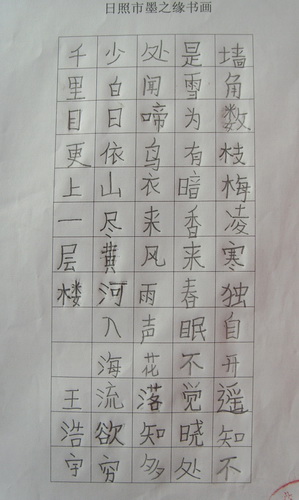 日照市墨之缘书画
墙角数枝梅凌寒独自开遥知不
是雪为有暗香来春眠不觉晓处
处闻啼鸟衣来风雨声花落知多
少白日依山尽黄河入海流欲穷
千里目更上一层楼 王浩宇